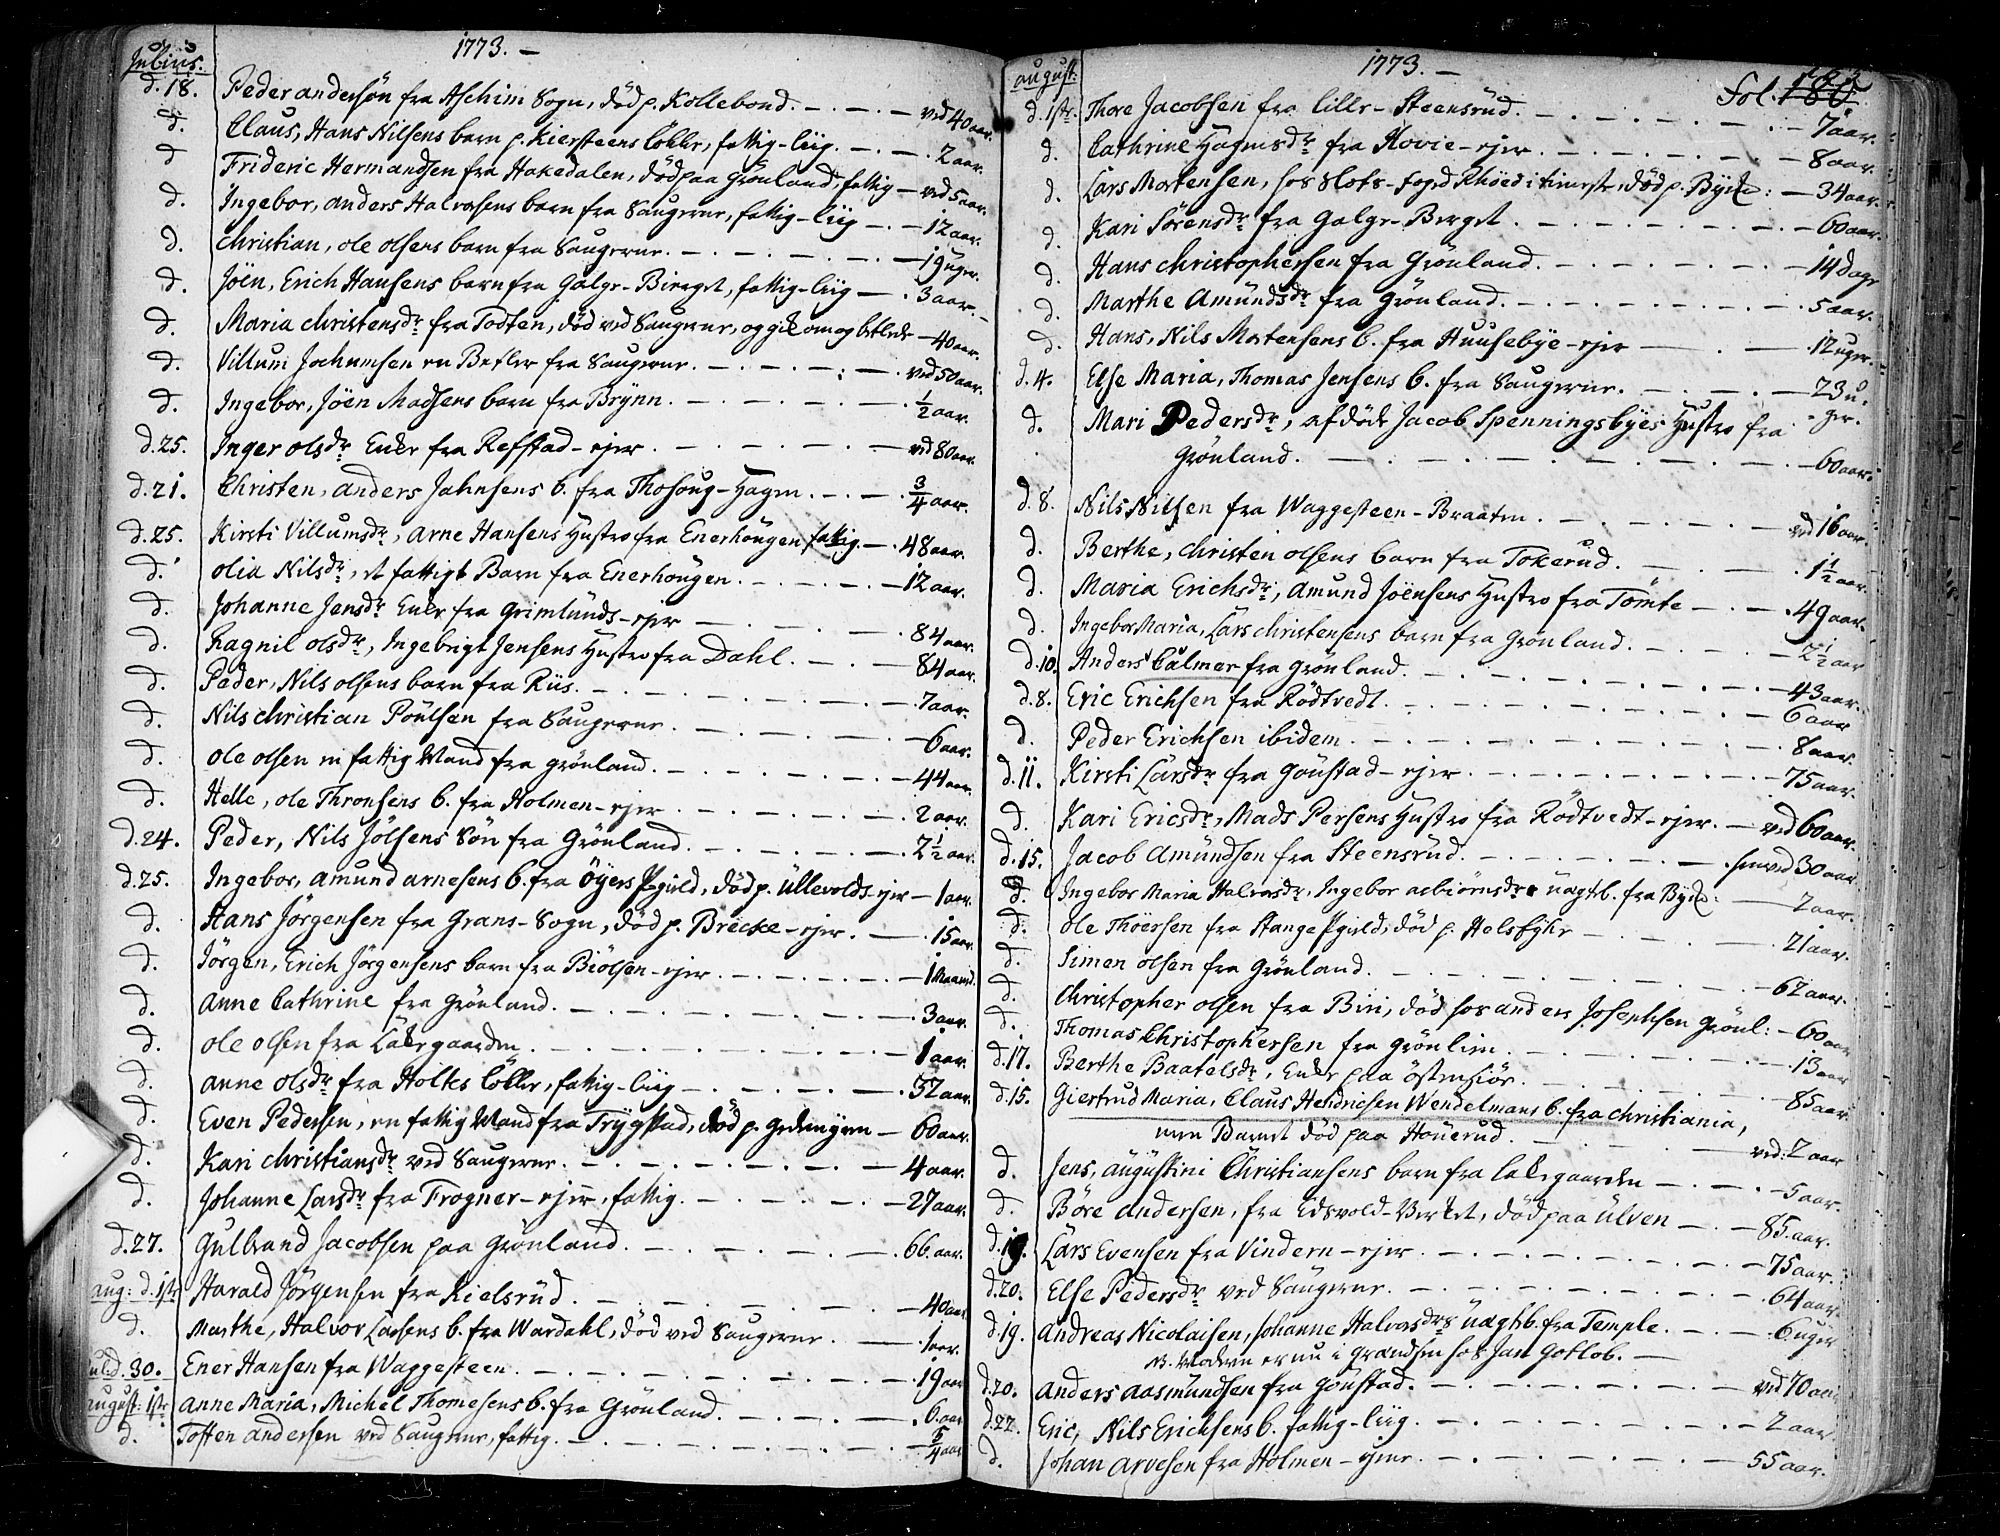 Julius.
1773. —
d. 18. Peder andersön fra Aschim Sogn, död p. Kollebond. — ved 40 aar.
d. Claus, Hans Nilsens barn p. Kiersteens Löcker, fattig-liig. — 2 aar.
d Frideric Hermandsen fra Hakedalen, död paa Grönland, fattig — ved 5 aar.
d. Ingebor, anders Halvorsens barn fra Saugerne, fattig-liig — 12 aar.
d. Christian, ole olsens barn fra Saugerne. — 19 uger.
d. Jöen, Erich Hansens barn fra Galge-Bierget, fattig-liig — 3 aar.
d. Maria christensdr fra Todten, död ved Saugerne, og gik om og betlede — 40 aar.
d. Villum Jochumsen en Betler fra Saugerne. — ved 50 aar.
d. Ingebor, Jöen Madsens barn fra Brÿnn. — 1/2 aar.
d. 25. Inger olsdr Enke fra Refstad-ejer — ved 80 aar.
d. 21. Christen, anders Jahnsens b. fra Thosoug-Hagen. — 3/4 aar.
d. 25. Kirsti Villumsdr, Arne Hansens Hustro fra Enerhöugen fattig. — 48 aar.
d. olia Nilsdr, et fattigt Barn fra Enerhöugen. — 12 aar.
d. Johanne Jensdr Enke fra Grimlunds-ejer — 84 aar.
d. Ragnil olsdr, Ingebrigt Jensens Hustro fra Dahl. — 84 aar.
d. Peder, Nils olsens barn fra Riis. — 7 aar.
d. Nils christian Poülsen fra Saugerne — 6 aar.
d. ole olsen en fattig Mand fra grönland. — 44 aar.
d. Helle, ole Thronsens b. fra Holmen-ejer — 2 aar.
d. 24. Peder, Nils Jölsens Sön fra Grönland. — 2 1/2 aar.
d. 25. Ingebor, amund arnesens b. fra Öyers Pgield, död p. Ullevolds-ejer — 1 aar.
d. Hans Jörgensen fra Grans-Sogn, död p. Brecke-ejer. — 15 aar.
d. Jörgen, Erich Jörgensens barn fra Biölsen-ejer. — 1 Maaned.
d. Anne Cathrine fra grönland. — 3 aar.
d. ole olsen fra Lakegaarden. — 1 aar.
d. Anne olsdr fra Holtes Löcker, fattig-liig — 32 aar.
d. Even Pedersen, en fattig Mand fra Trÿgstad, död p. — 60 aar.
d. Kari christiansdr ved Saugerne. — 4 aar.
d. Johanne Larsdr fra Frogner-ejer, fattig. — 27 aar.
d. 27. Gulbrand Jacobsen paa Grönland. — 66. aar.
aug: d. 1ste Harald Jörgensen fra Kielsrüd. — 40 aar
d. Marthe, Halvor Larsens b. fra Wardahl, död ved Saugerne. — 1 aar.
Juli d. 30. Ener Hansen fra Waggesteen. — 19 aar
august: 1ste Anne Maria, Michel Thomesens b. fra Grönland. — 6. aar
d. Tosten andersen ved Saugerne, fattig. — 5/4 aar
august:
1773. —
Fol. 180
d. 1ste. Thore Jacobsen fra lille-Steensrüd. — 7 aar.
d. Cathrine Hagensdr fra Hovie-ejer. — 8 aar.
d. Lars Mortensen, hos Slots-foged död p. Bÿck: — 34 aar.
d. Kari Sörensdr fra Galge-Berget. — 60 aar.
d. Hans christophersen fra Grönland. — 14 dage
d. Marthe Amündsdr fra Grönland. — 5 aar.
d. Hans, Nils Mortensens b. fra Huusebÿe-ejer — 12 uger.
d. 4. Else Maria, Thomas Jensens b. fra Saugerne. — 23 u-
d. Mari Pedersdr, afdöde Jacob Spenningsbÿes Hustro fra - ger.
Grönland. — 60 aar.
d. 8. Nils Nilsen fra Waggesteen-Braaten. — ved 16 aar.
d. Berthe, christen olsens barn fra Tokerud. — 1 1/2 aar.
d. Maria Erichsdr, amund Jöensens Hustro fra Tömte — 49 aar.
d. Ingebor Maria, Lars christensens barn fra Grönland. — 2 1/2 aar
d. 10. Anders Calmer fra grönland. — 43 aar.
d. 8. Eric Erichsen fra Rödtvedt. — 6 aar
d. Peder Erichsen ibidem. — 8 aar.
d. 11. Kirsti Larsdr fra Gaustad-ejer. — 75 aar.
d. Kari Ericsdr, Mads Persens Hustro fra Rödtvedt-ejer. — ved 60 aar.
d. 15. Jacob Amündsen fra Steensrüd. — henved 30 aar
d. Ingebor Maria Halvorsdr, Ingebor asbiörnsdrs üægt b. fra Bÿck: — 2 aar.
d. ole Thöersen fra Stange Pgield, död p. Helsfÿhr — 21 aar.
d. Simen olsen fra Grönland. — 62 aar.
d. Christopher olsen fra Biri, död hos anders Josephsen Grönl: — 60 aar
d. Thomas Christophersen fra Grönlien. — 13 aar
d. 17. Berthe Baatelsdr, Enke paa Östensiör. — 85 aar
d. 15. Giertrud Maria, Claus Hendricsen Wendelmans b. fra Christiania,
men Barnet död paa Houerud. — ved. 2 aar
d. Jens, augustini Christiansens barn fra Lakegaarden — 5 aar.
d. Böre andersen, fra Edsvold-Verket, död paa Ülven — 85. aar.
d. 19. Lars Evensen fra Vindern-ejer — 75 aar.
d. 20. Else Pedersdr ved Saugerne. — 64 aar.
d. 19. Andreas Nicolaisen, Johanne Halvorsdrs üægt b. fra Temple. — 6 uger
NB. Moderen er nu i Grændsen hos Jan Gotlob. —
d. 20. Anders Aasmündsen fra Goustad. — ved 70 aar
d. 22. Eric, Nils Erichsens b. fattig-liig. — 2 aar.
d. Johan Arvesen fra Holmen-ejere — 55 aar.